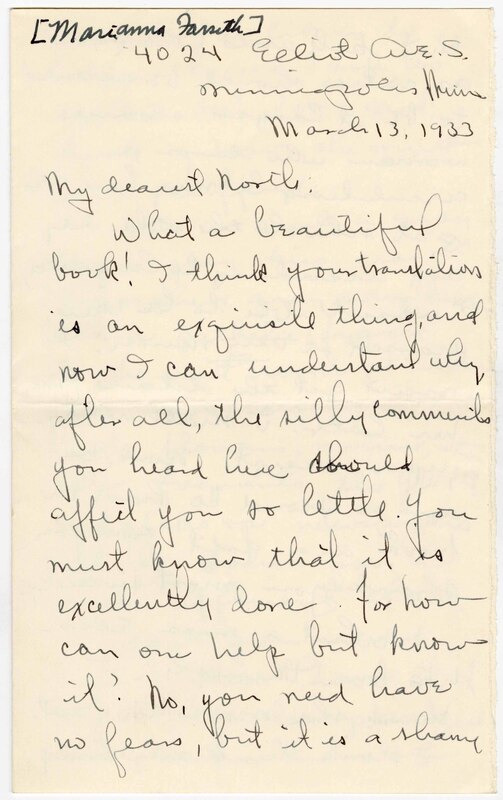 [Marianna Forseth]
4024 Elliot Ave. S.
Minneapolis Minn
March 13, 1933
My dearest North:
What a beautiful
book! I think your translation
is an exquisite thing, and
now I can understand why,
after all, the silly comments
you heard here should
affect you so little. You
must know that it is
excellently done. For how
can one help but know
it? No, you need have
no fears, but it is a shame